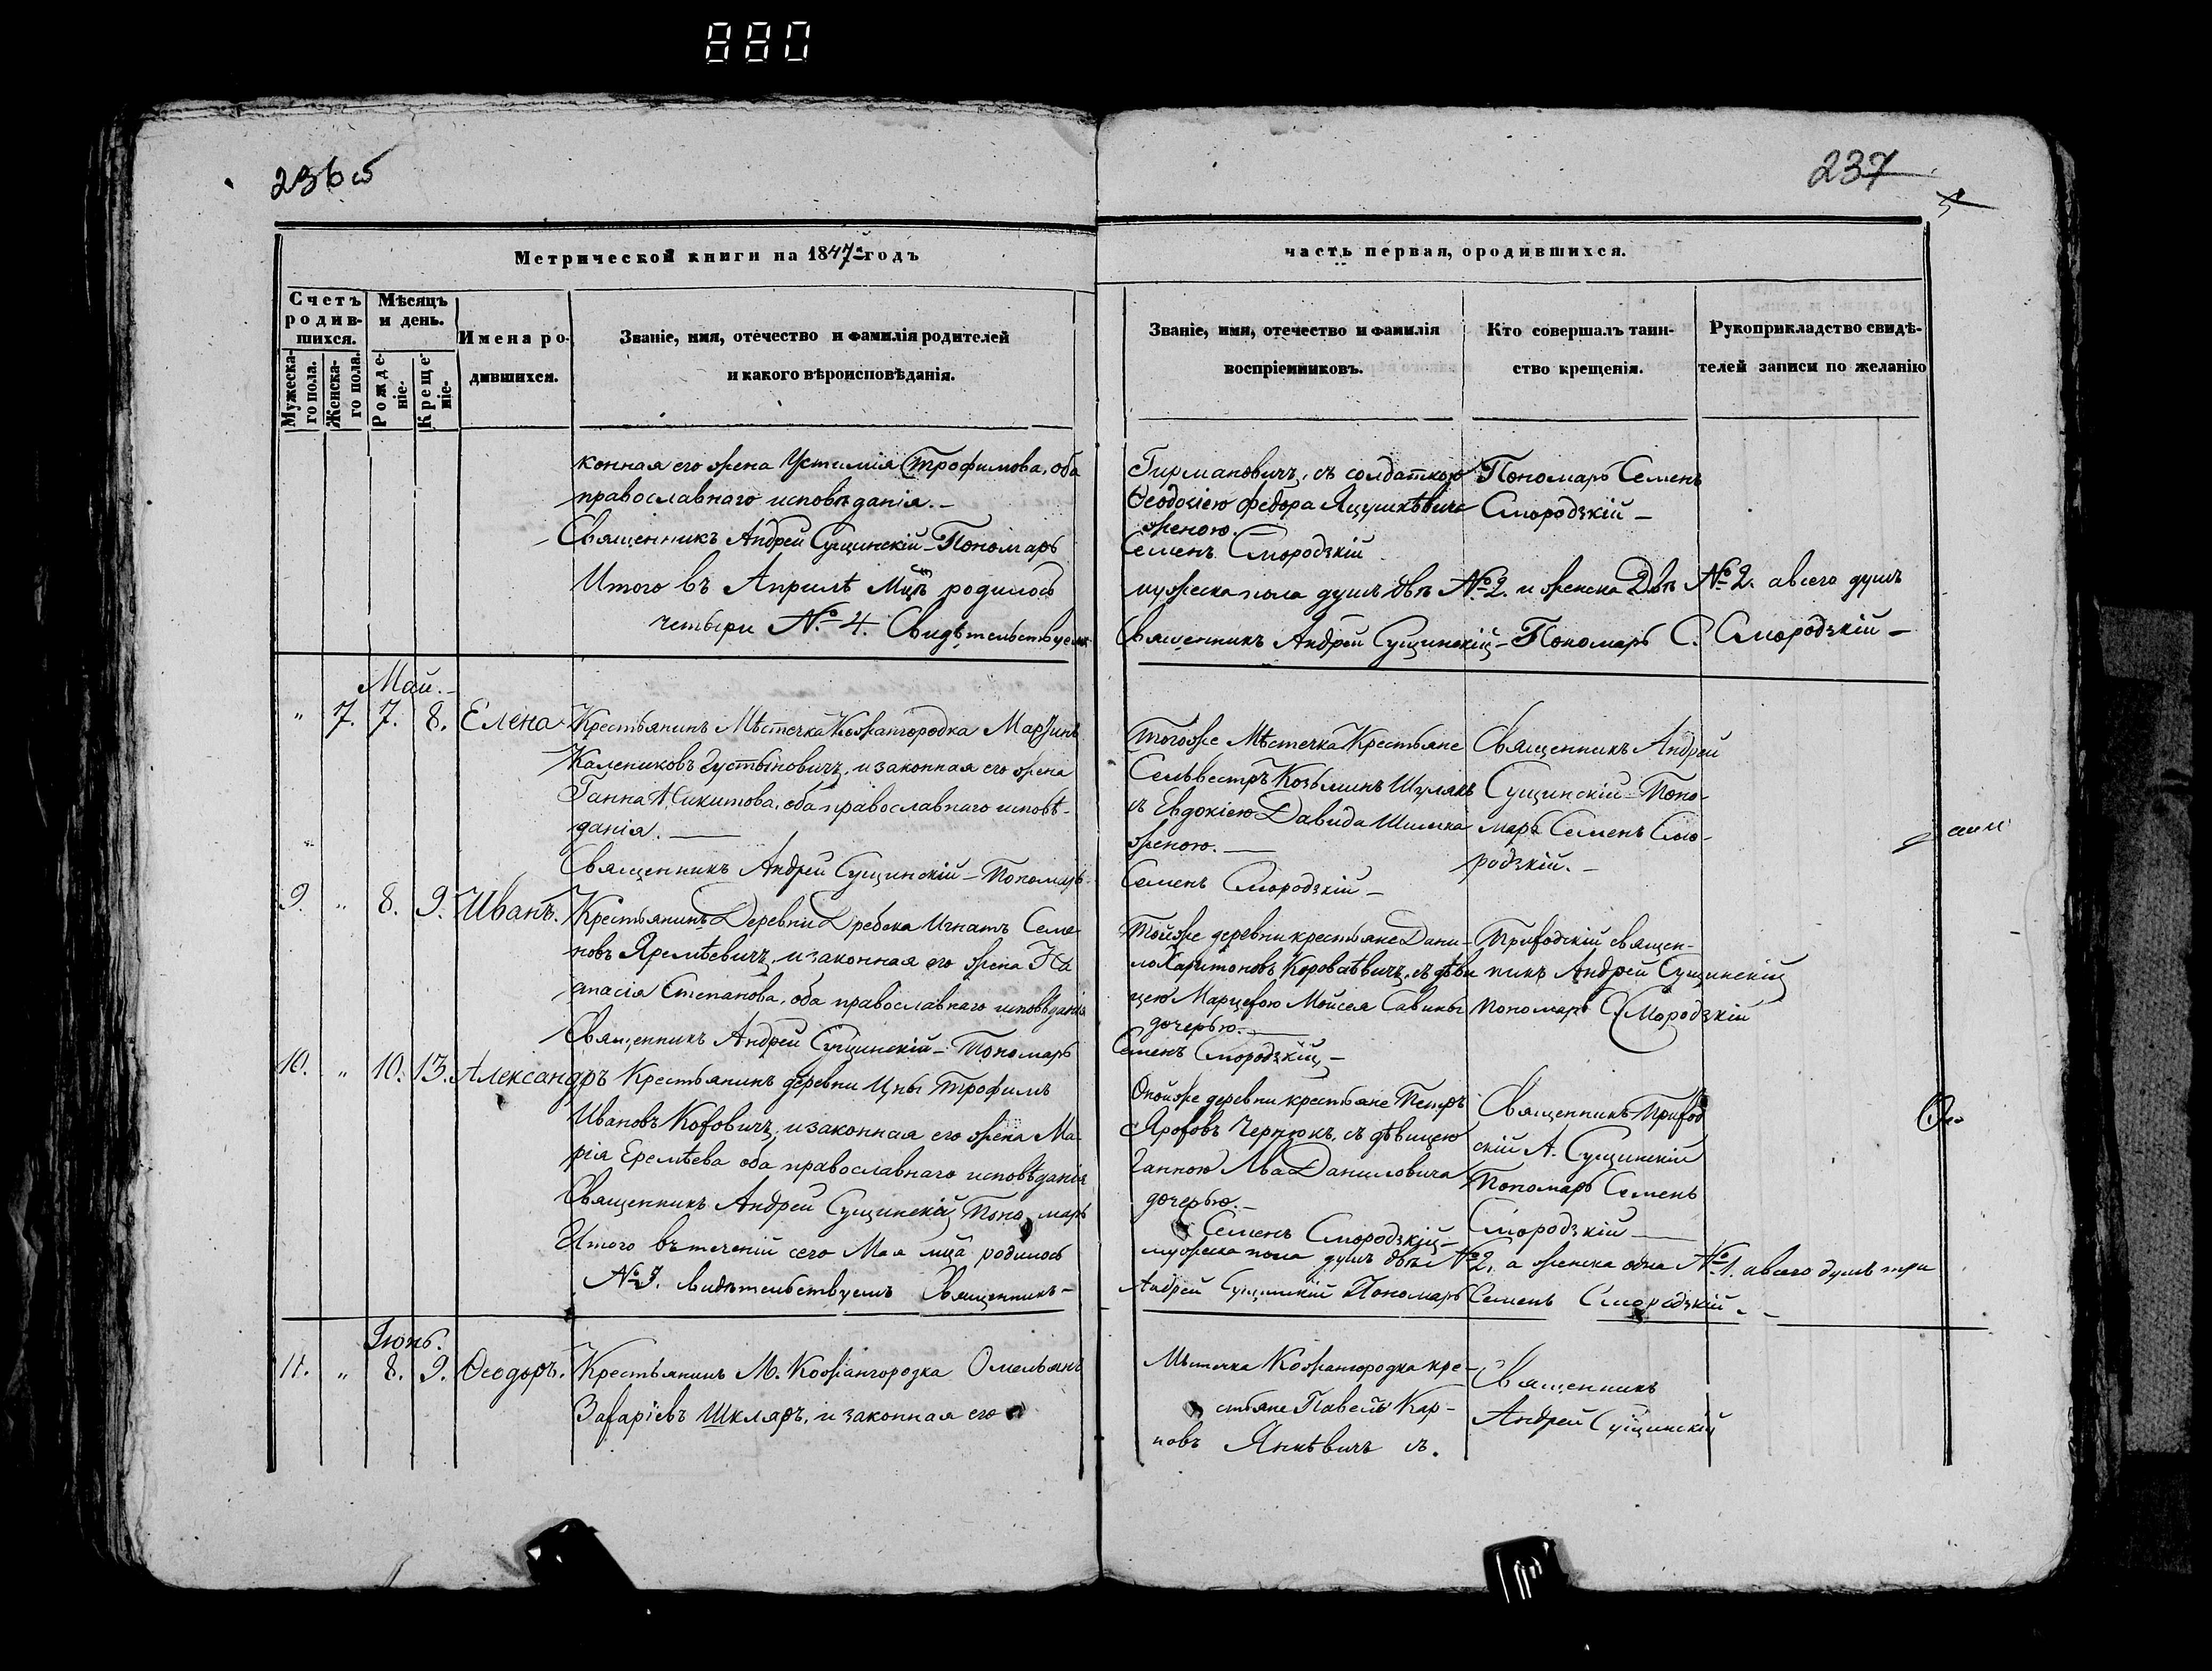 880
236 об
237
Метрической книги на 1847-й годъ
часть первая, ородившихся.
Счетъ родив-шихся.
Мѣсяцъ и день.
Мужеска-го пола.
Женска-го пола.
Рожде-ніе.
Креще-ніе.
Имена ро-дившихся.
Званіе, имя, отечество и фамилія родителей
и какого вѣроисповѣданія.
Званіе, имя, отечество и фамилія
воспріемниковъ.
Кто совершалъ таин-
ство крещенія.
Рукоприкладство свидѣ-
телей записи по желанію
конная его жена Устимія Трофимова, оба
православнаго исповѣданія.-
Священникъ Андрей Сущинскій - Пономарь
Итого въ Априлѣ мцѣ родилось
четыри №. 4. Свидѣтельствуемъ
Гирмановичъ, съ солдаткою
Ѳеодосіею Федора Яцушкѣвича
женою.
Семенъ Смородзкій
мужеска пола душъ двѣ № 2. и женска Двѣ № 2. а всего душъ
Священникъ Андрей Сущинскій - Пономарь С. Смородзкій -
Пономарь Семенъ
Смородзкій -
Май.-
" 7. 7. 8. Елена
Крестьянинъ Мѣстечка Кожангородка Мартинъ
Калениковъ Густыновичъ, и законная его жена
Ганна Никитова, оба православнаго исповѣ-
данія.
Священникъ Андрей Сущинскій - Пономарь
Тогоже Мѣстечка Крестьяне
Сельвестръ Козьминъ Шулякъ
съ Евдокіею Давида Шимка
женою.
Семенъ Смородзкій -
Священникъ Андрей
Сущинскій - Поно-
марь Семенъ Смо-
родзкій. -
9. " 8. 9. Иванъ.
Крестьянинъ Деревни Дребска Игнатъ Семе
новъ Яремѣевичъ, и законная его жена На
стасія Степанова, оба православнаго исповѣданія
Священникъ Андрей Сущинскій - Пономарь
Тойже деревни крестьяне Дани-
ло Харитоновъ Короваѣвичъ, съ дѣви
цею Марцеѳою Мойсея Савины
дочерью.
Семенъ Смородзкій, -
Приходскій священ-
никъ Андрей Сущинскій
пономарь С. Смородзкій
10. " 10. 13. Александръ
Крестьянинъ деревни Цны Трофимъ
Ивановъ Коховичъ, и законная его жена Ма-
рія Еремѣева оба православнаго исповѣданія
Священникъ Андрей Сущинскій Поно марь
Итого въ теченій сего Мая мца родилось
№ 3. свидѣтельствуемъ Священникъ -
Тойже деревни крестьяне Петръ
Яроховъ Чернюкъ, съ дѣвицею
Ганною Льва Даниловича
дочерью. -
Семенъ Смородзкій -
мужеска пола душъ двѣ № 2, а женска одна № 1. а всего душъ три
Андрей Сущинскій Пономарь Семенъ Смородзкій. -
Священникъ Приход
скій А. Сущинскій
Пономарь Семенъ
Смородзкій
Іюнь.
11. " 8. 9. Ѳеодоръ.
Крестьянинъ М. Кожангородка Омельянъ
Захаріевъ Шкляръ, и законная его
Мѣстечка Кожангородка кре-
стьяне Павелъ Кар-
повъ Янкѣвичъ съ
Священникъ
Андрей Сущинскій